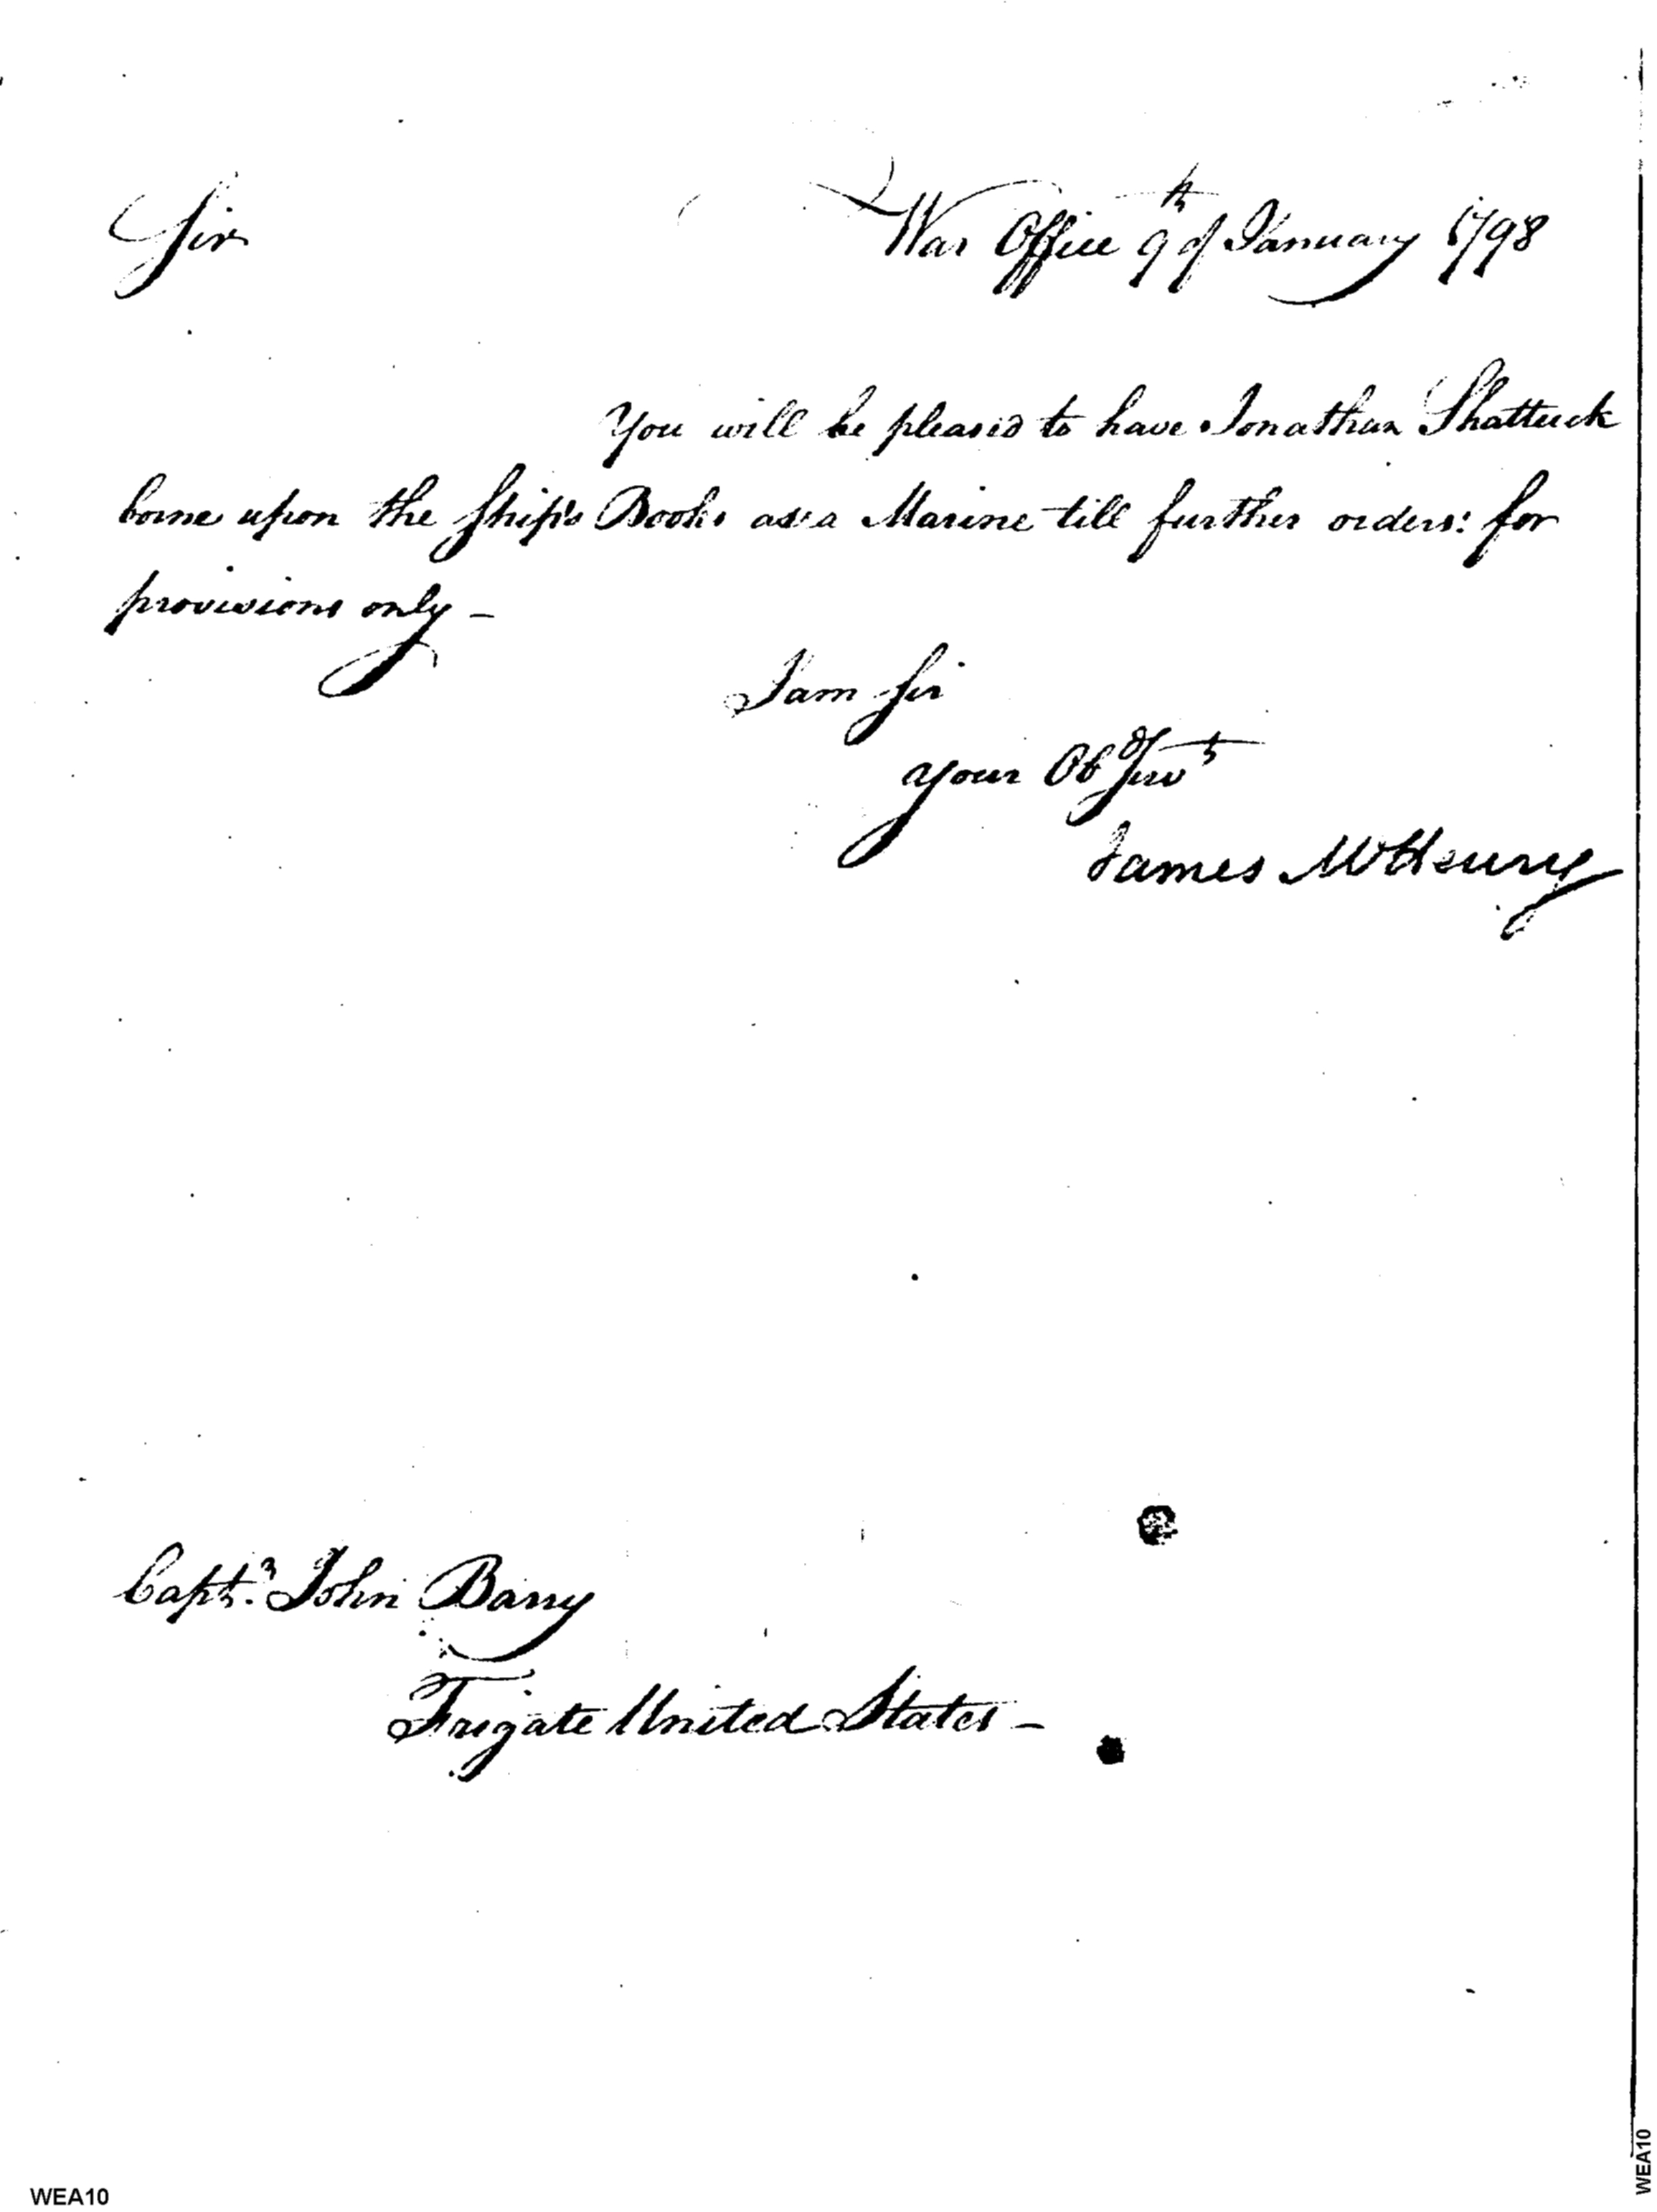 Sir War Office 9th of January 1798
You will be pleased to have Jonathan Shattuck
borne upon the Ship's Books as a Marine till further orders: for
provisions only –
I am Sir
your Obd Servt
James McHenry
Captn. John Barry
Frigate United States –
WEA10
WEA10